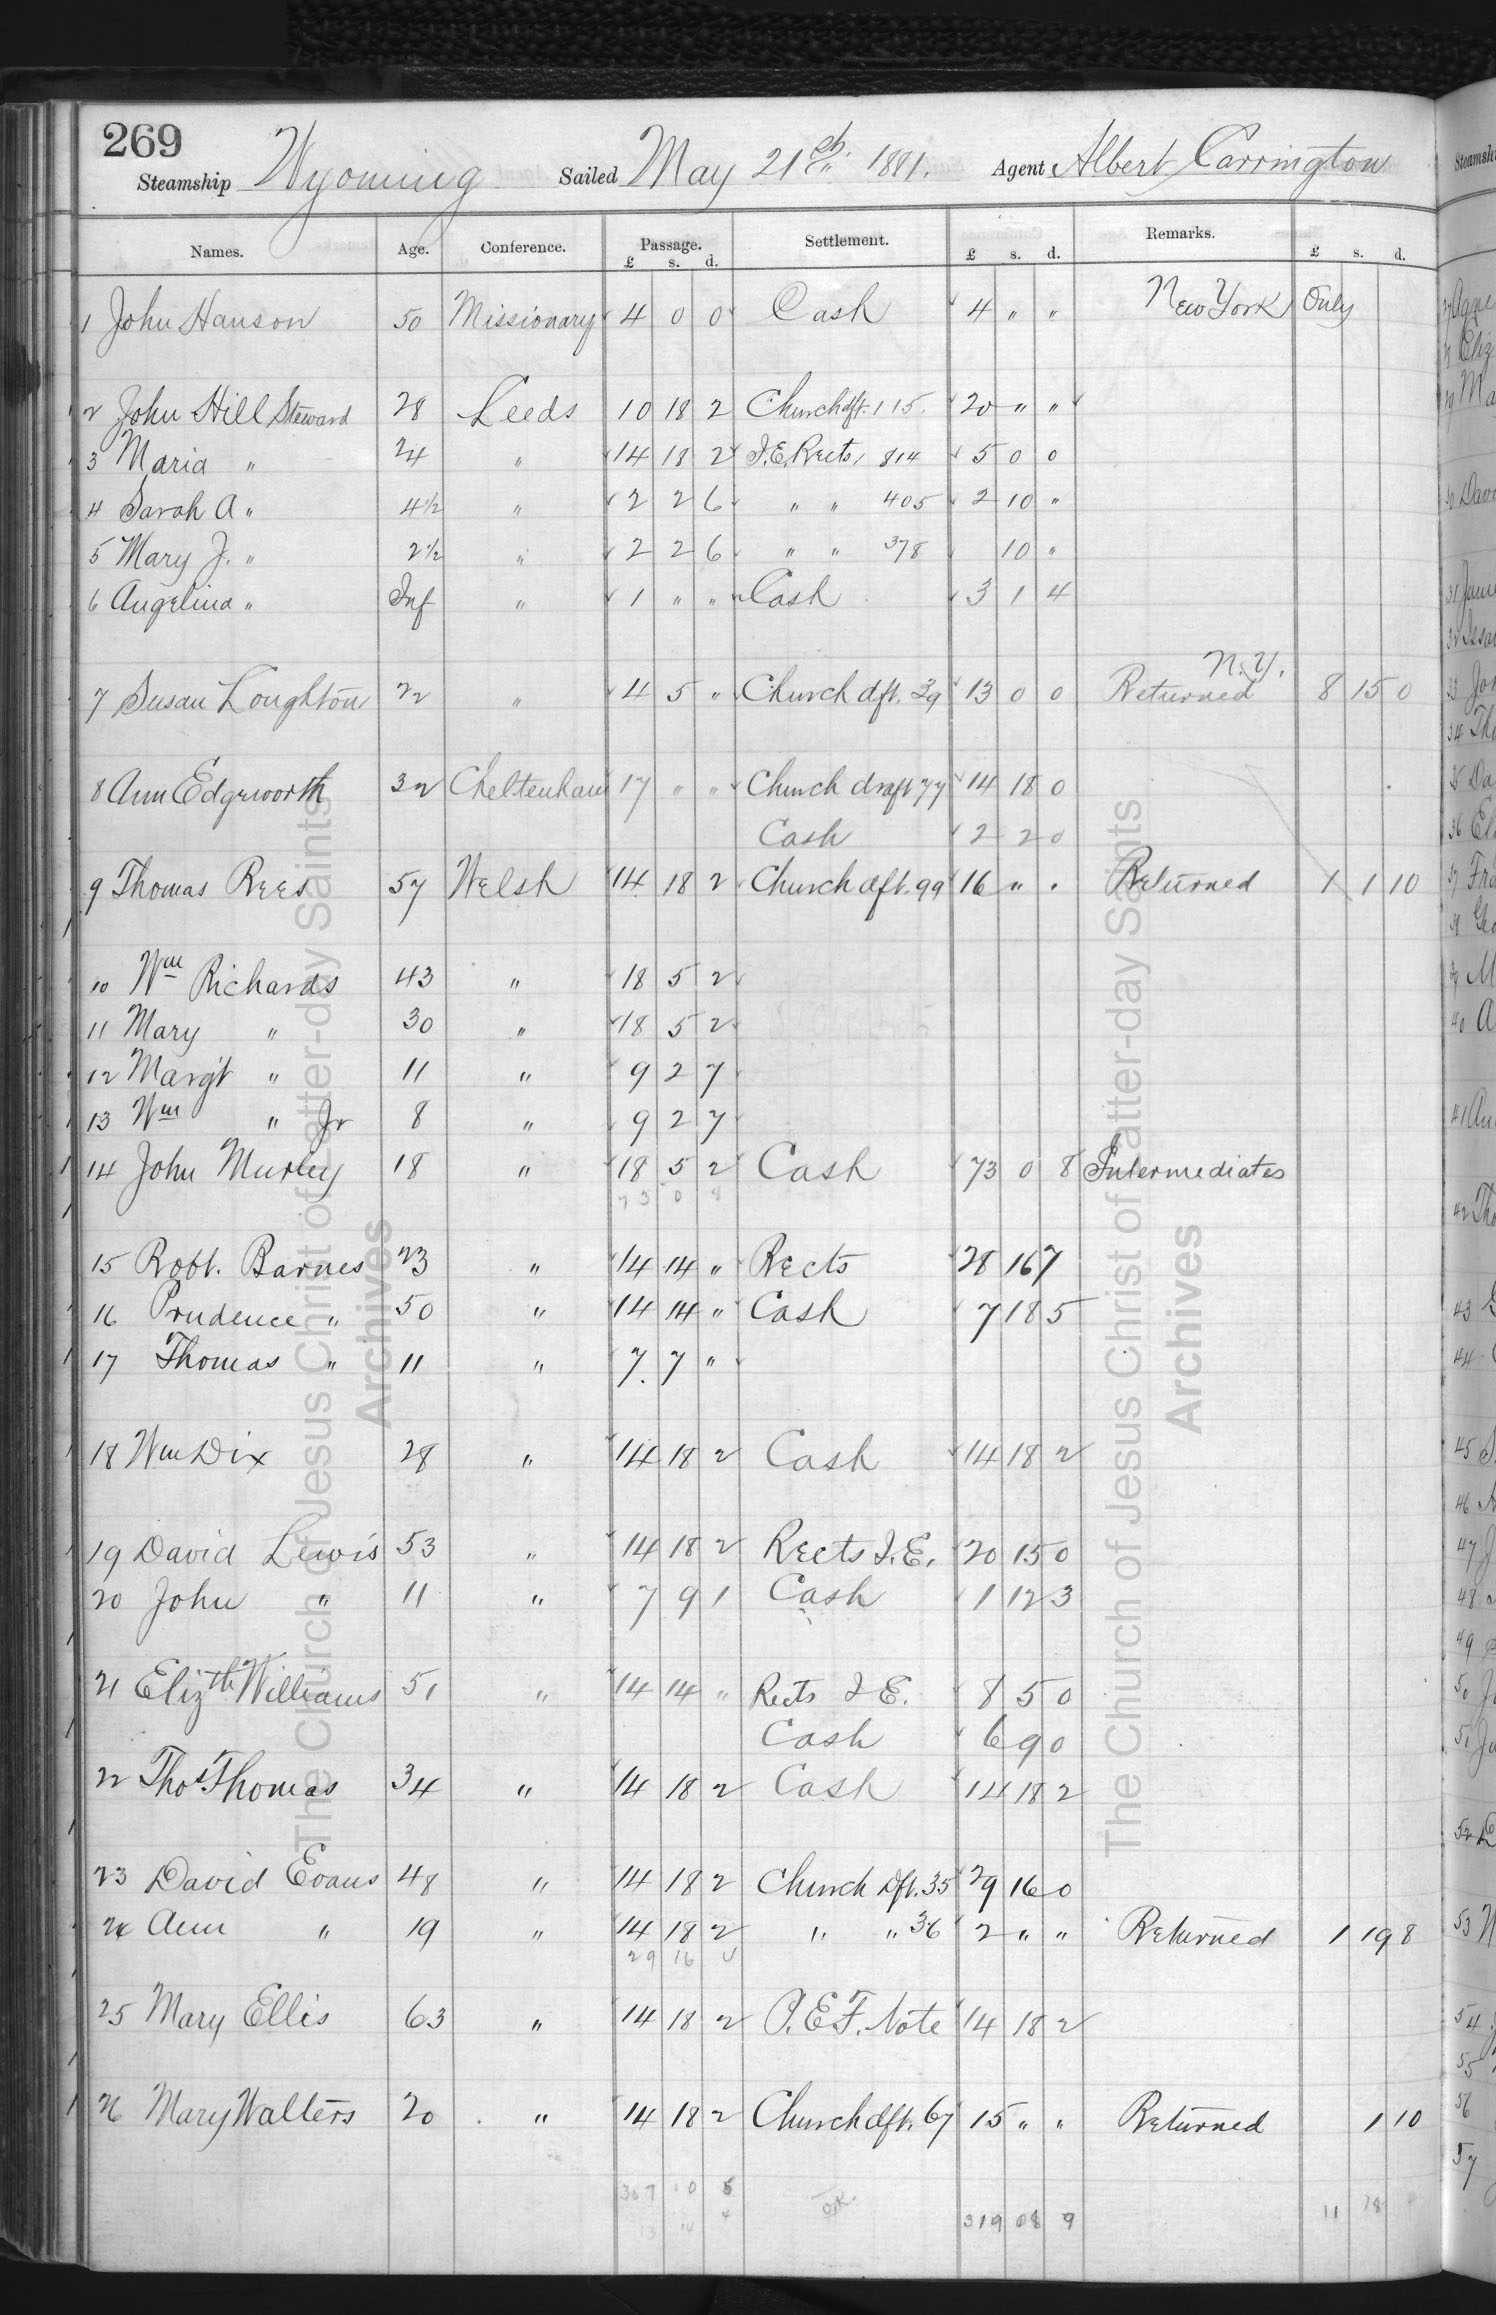 269
Steamship Wyoming Sailed May 21st 1881. Agent Albert Carrington
Names. Age. Conference. Passage. Settlement. Remarks.
£ s. d. £ s. d. £ s. d.
1 John Hanson 50 Missionary 4 0 0 Cash 4 " " New York Only
2 John Hill Steward 28 Leeds 10 18 2 Church dft. 115. 20 " "
3 Maria " 24 " 14 18 2 I.E. Rects, 814 5 0 0
4 Sarah A " 4½ " 2 2 6 " " 405 2 10 "
5 Mary J. " 2½ " 2 2 6 " " 378 10 "
6 Angelina " Inf " 1 " " Cash 3 1 4
7 Susan Loughton 22 " 4 5 " Church dft. 39 13 0 0 Returned N.Y. 8 15 0
8 Ann Edgeworth 32 Cheltenham 17 " " Church draft 77 14 18 0
Cash 2 2 0
9 Thomas Rees 57 Welsh 14 18 2 Church dft. 99 16 " " Returned 1 1 10
10 Wm Richards 43 " 18 5 2
11 Mary " 30 " 18 5 2
12 Margt " 11 " 9 2 7
13 Wm " Jr 8 " 9 2 7
14 John Murley 18 " 18 5 2 Cash 73 0 8 Intermediates
73 0 8
15 Robt. Barnes 23 " 14 14 " Rects 28 16 7
16 Prudence " 50 " 14 14 " Cash 7 18 5
17 Thomas " 11 " 7 7 "
18 Wm Dix 28 " 14 18 2 Cash 14 18 2
19 David Lewis 53 " 14 18 2 Rects I.E. 20 15 0
20 John " 11 " 7 9 1 Cash 1 12 3
21 Elizth Williams 51 " 14 14 " Rects I E. 8 5 0
Cash 6 9 0
22 Thos. Thomas 34 " 14 18 2 Cash 14 18 2
23 David Evans 48 " 14 18 2 Church Dft. 35 29 16 0
24 Ann " 19 " 14 18 2 " " 36 2 " " Returned 1 19 8
29 16 4
25 Mary Ellis 63 " 14 18 2 P.E.F. Note 14 18 2
26 Mary Walters 20 " 14 18 2 Church dft. 67 15 " " Returned 1 10
307 10 O.K.
319 08 9
11 18
The Church of Jesus Christ of Latter-day Saints
Archives
The Church of Jesus Christ of Latter-day Saints
Archives